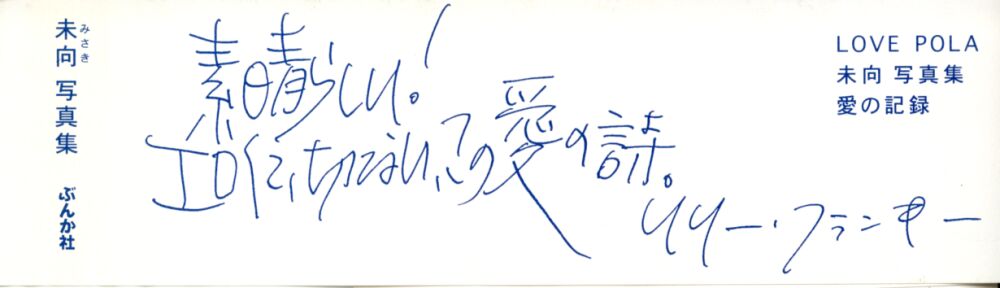 みさき
未向 写真集 ぶんか社
素晴らしい!
エロく、切ない、この愛の詩。
リリー・フランキー
LOVE POLA
未向 写真集
愛の記録